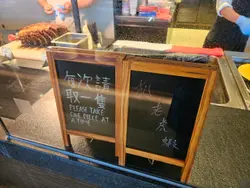 每次請
取一隻
PLEASE TAKE
ONE PIECE AT
A TIME
老虎蝦